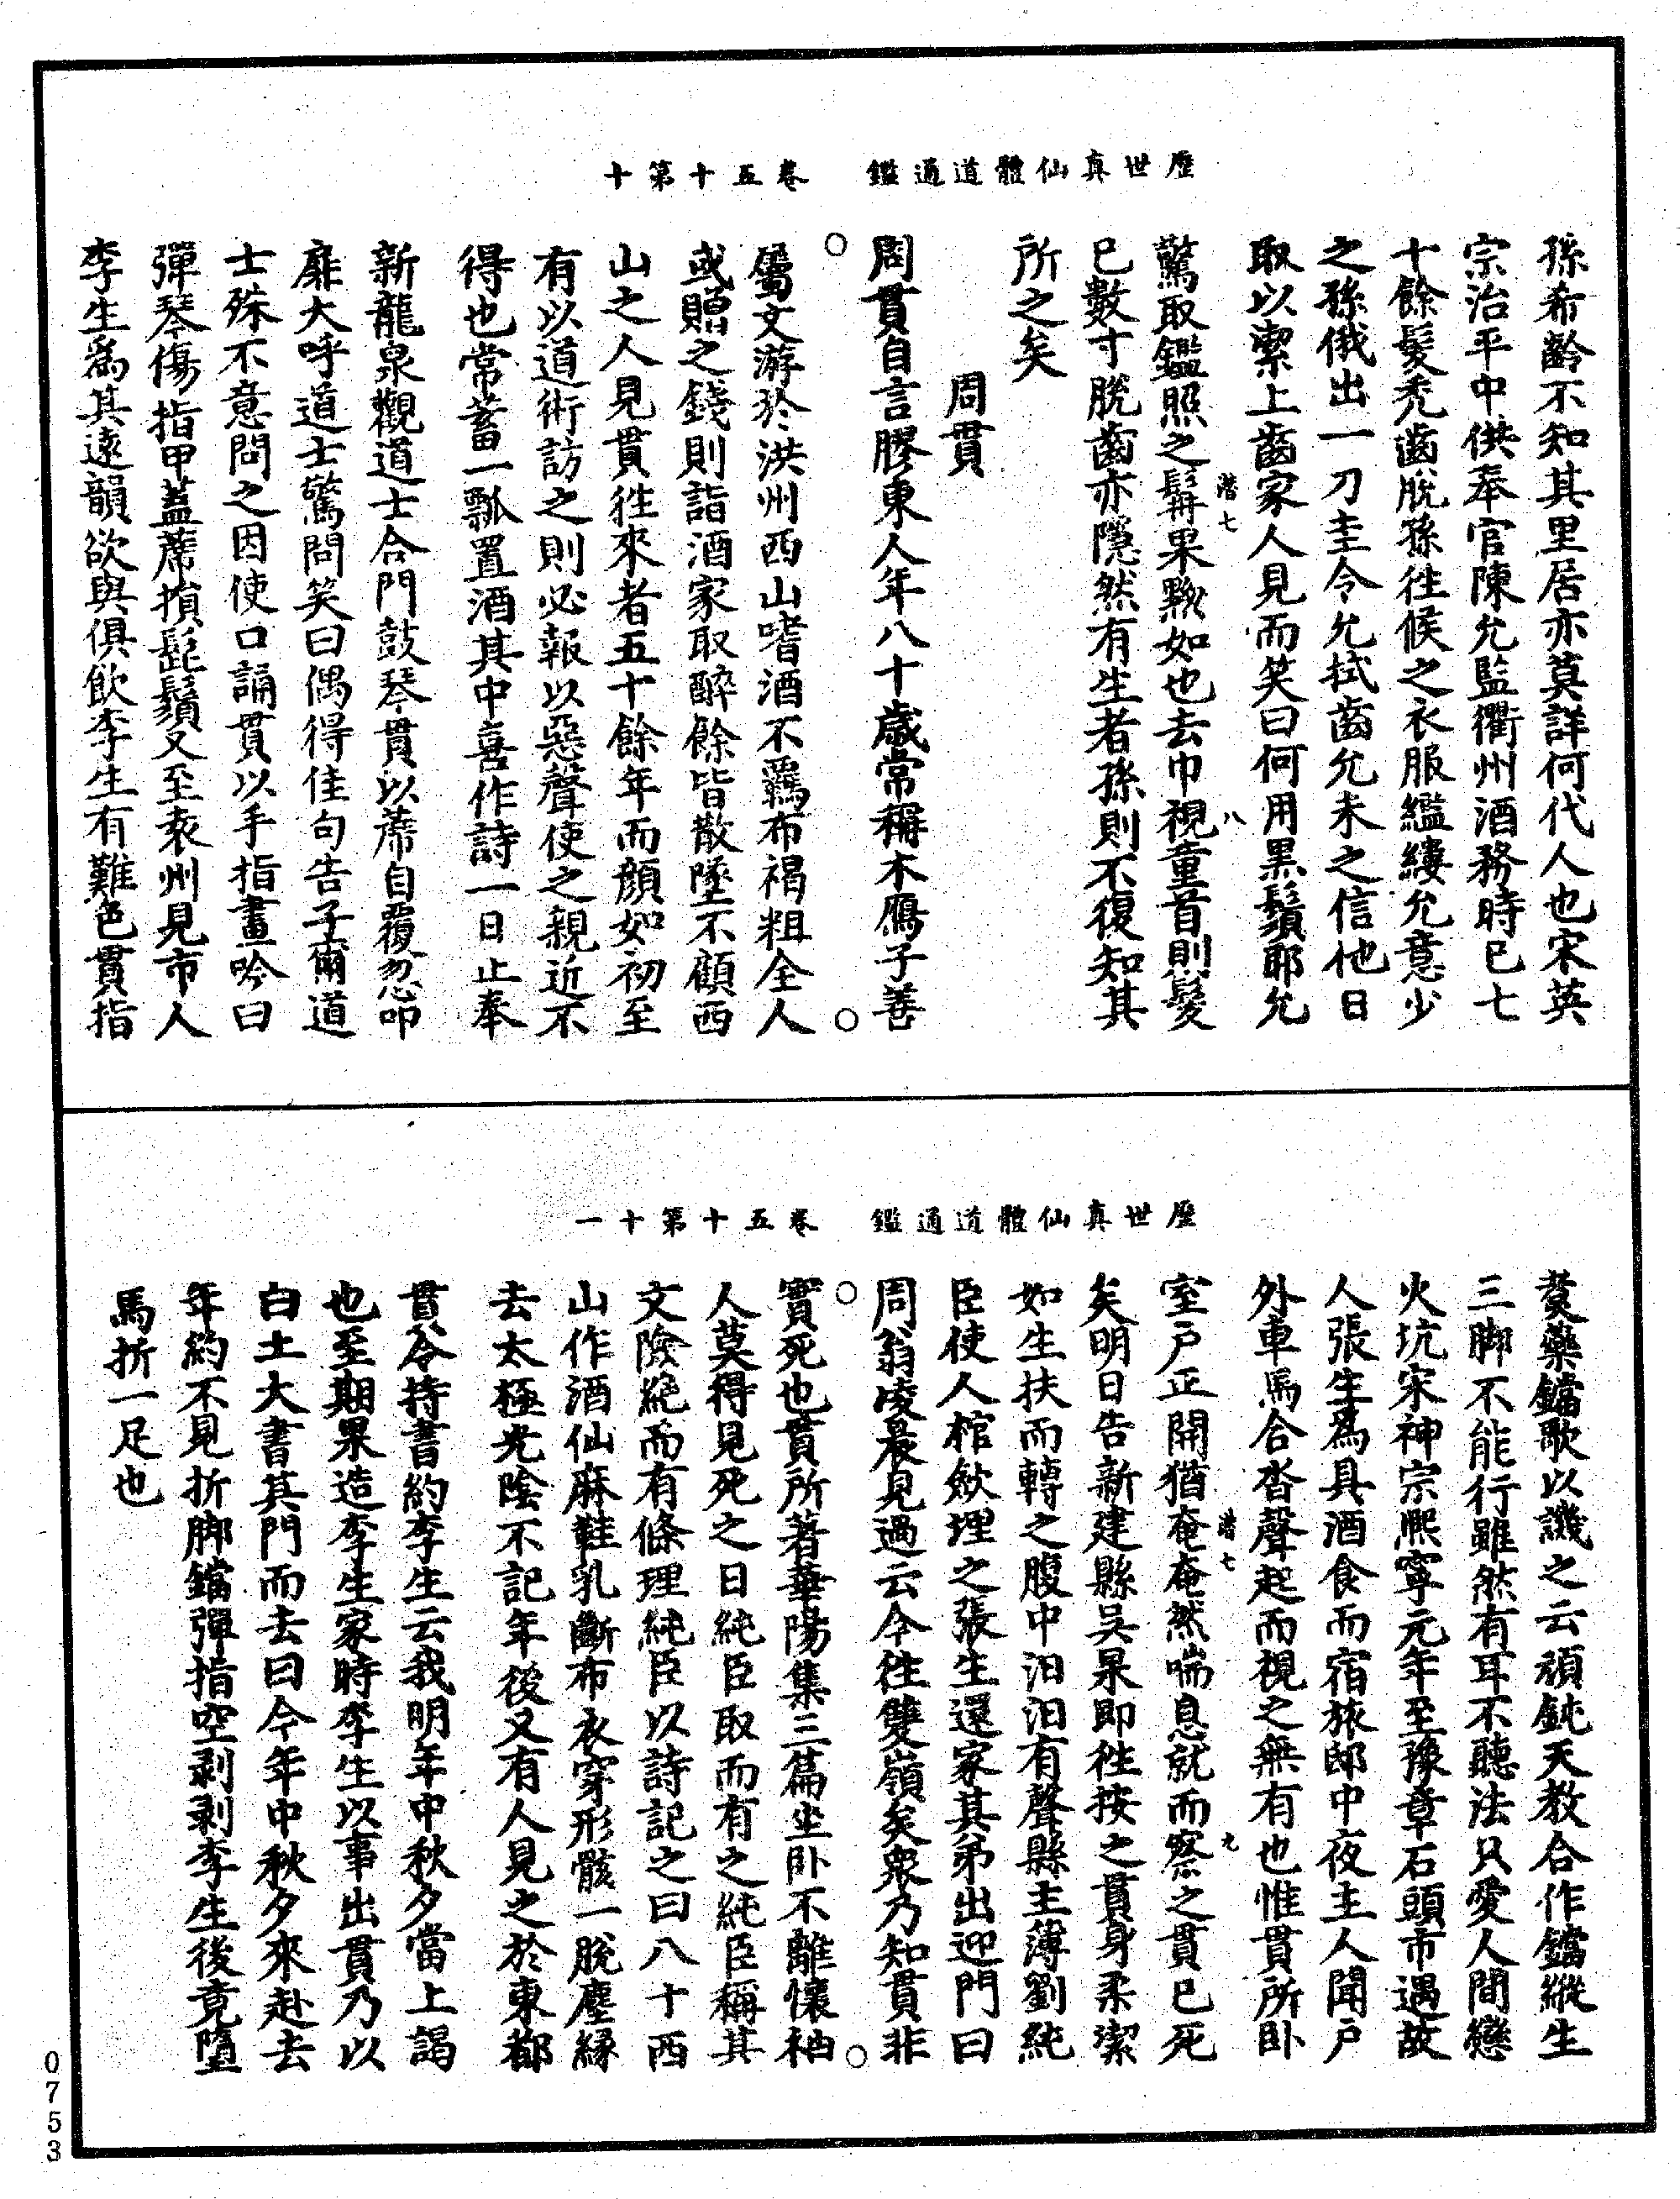 歷世真仙體道通鑑　卷五十第十
孫希齡不知其里居亦莫詳何代人也宋英
宗治平中供奉官陳允監衢州酒務時已七
十餘髮禿齒脫孫往候之衣服繿縷允意少
之孫俄出一刀圭令允拭齒允未之信他日
取以潔上齒家人見而笑曰何用黑鬚耶允
潜七　八
驚取鑑照之髯果黟如也去巾視童首則髮
已數寸脫齒亦隱然有生者孫則不復知其
所之矣
周貫
周貫自言膠東人年八十歲常稱木鴈子善
屬文游於洪州西山嗜酒不羈布褐粗全人
或贈之錢則詣酒家取醉餘皆散墜不顧西
山之人見貫往來者五十餘年而顏如初至
有以道術訪之則必報以惡聲使之親近不
得也常蓄一瓢置酒其中喜作詩一日止奉
新龍泉觀道士合門鼓琴貫以蓆自覆忽叩
扉大呼道士驚問笑曰偶得佳句告子爾道
士殊不意問之因使口誦貫以手指畫吟曰
彈琴傷指甲蓋蓆損髭鬚又至袁州見市人
李生爲其遠韻欲與俱飲李生有難色貫指
歷世真仙體道通鑑　卷五十第十一
煑藥鐺歌以譏之云頑鈍天教合作鐺縱生
三脚不能行雖然有耳不聽法只愛人間戀
火坑宋神宗熙寧元年至豫章石頭市遇故
人張生爲具酒食而宿旅邸中夜主人聞戶
外車馬合沓聲起而視之無有也惟貫所卧
潜七　九
室戶正開猶奄奄然喘息就而察之貫已死
矣明日告新建縣吳杲即往按之貫身柔潔
如生扶而轉之腹中汩汩有聲縣主薄劉純
臣使人棺斂埋之張生還家其弟出迎門曰
周翁凌晨見過云今往雙嶺矣衆乃知貫非
實死也貫所著華陽集三篇坐卧不離懷袖
人莫得見死之日純臣取而有之純臣稱其
文險絶而有條理純臣以詩記之曰八十西
山作酒仙麻鞋乳斷布衣穿形骸一脫塵緣
去太極光陰不記年後又有人見之於東都
貫令持書約李生云我明年中秋夕當上謁
也至期果造李生家時李生以事出貫乃以
白土大書其門而去曰今年中秋夕來赴去
年約不見折脚鐺彈指空剥剥李生後竟墮
馬折一足也
0753